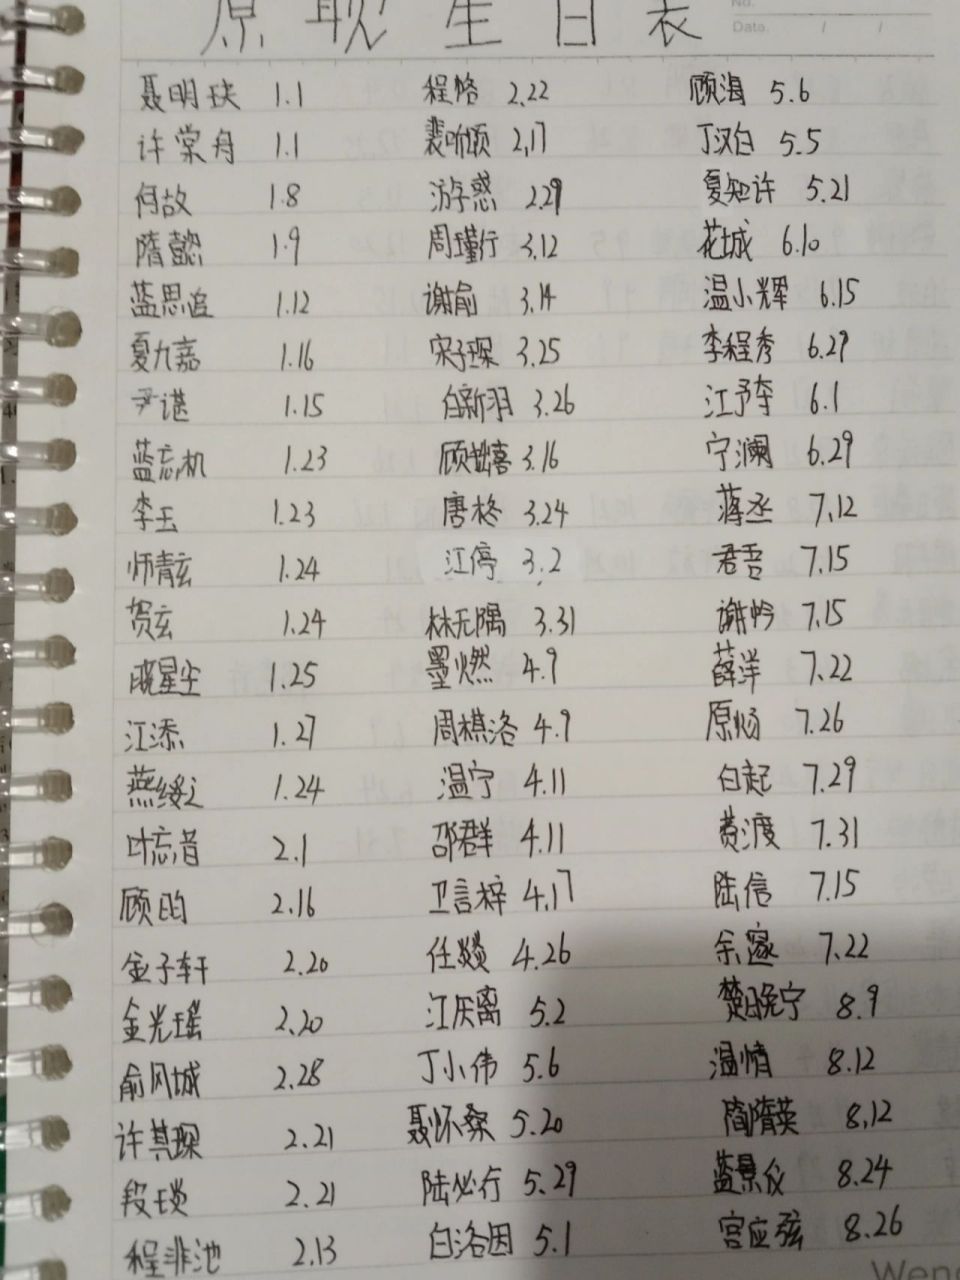 原耽生日表
No.
Date. / /
聂明玦 1.1 程恪 2.22 顾海 5.6
许棠舟 1.1 裴听颂 2.17 丁汉白 5.5
何故 1.8 游惑 2.29 夏知许 5.21
隋懿 1.9 周瑾行 3.12 花城 6.10
蓝思追 1.12 谢俞 3.14 温小辉 6.15
夏九嘉 1.16 宋子琛 3.25 李程秀 6.29
尹谌 1.15 白新羽 3.26 江予夺 6.1
蓝忘机 1.23 顾拙喜 3.16 宁澜 6.29
李玉 1.23 唐柊 3.24 蒋丞 7.12
师青玄 1.24 江停 3.2 君吾 7.15
贺玄 1.24 林无隅 3.31 谢怜 7.15
晓星尘 1.25 墨燃 4.9 薛洋 7.22
江添 1.27 周樵洛 4.9 原炀 7.26
燕绥之 1.24 温宁 4.11 白起 7.29
叶忘昔 2.1 邵群 4.11 费渡 7.31
顾昀 2.16 卫言梓 4.17 陆信 7.15
金子轩 2.20 任燚 4.26 余邃 7.22
金光瑶 2.20 江厌离 5.2 楚晚宁 8.9
俞风城 2.28 丁小伟 5.6 温情 8.12
许其琛 2.21 聂怀桑 5.20 简隋英 8.12
段琰 2.21 陆必行 5.29 蓝景仪 8.24
程非池 2.13 白洛因 5.1 宫应弦 8.26